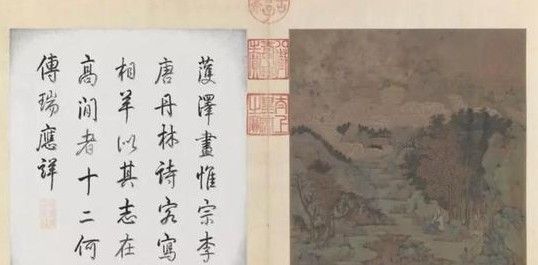 濩澤畫惟宗李
唐丹林詩客寫
相羊以其志在
高閒者十二何
傳瑞應詳